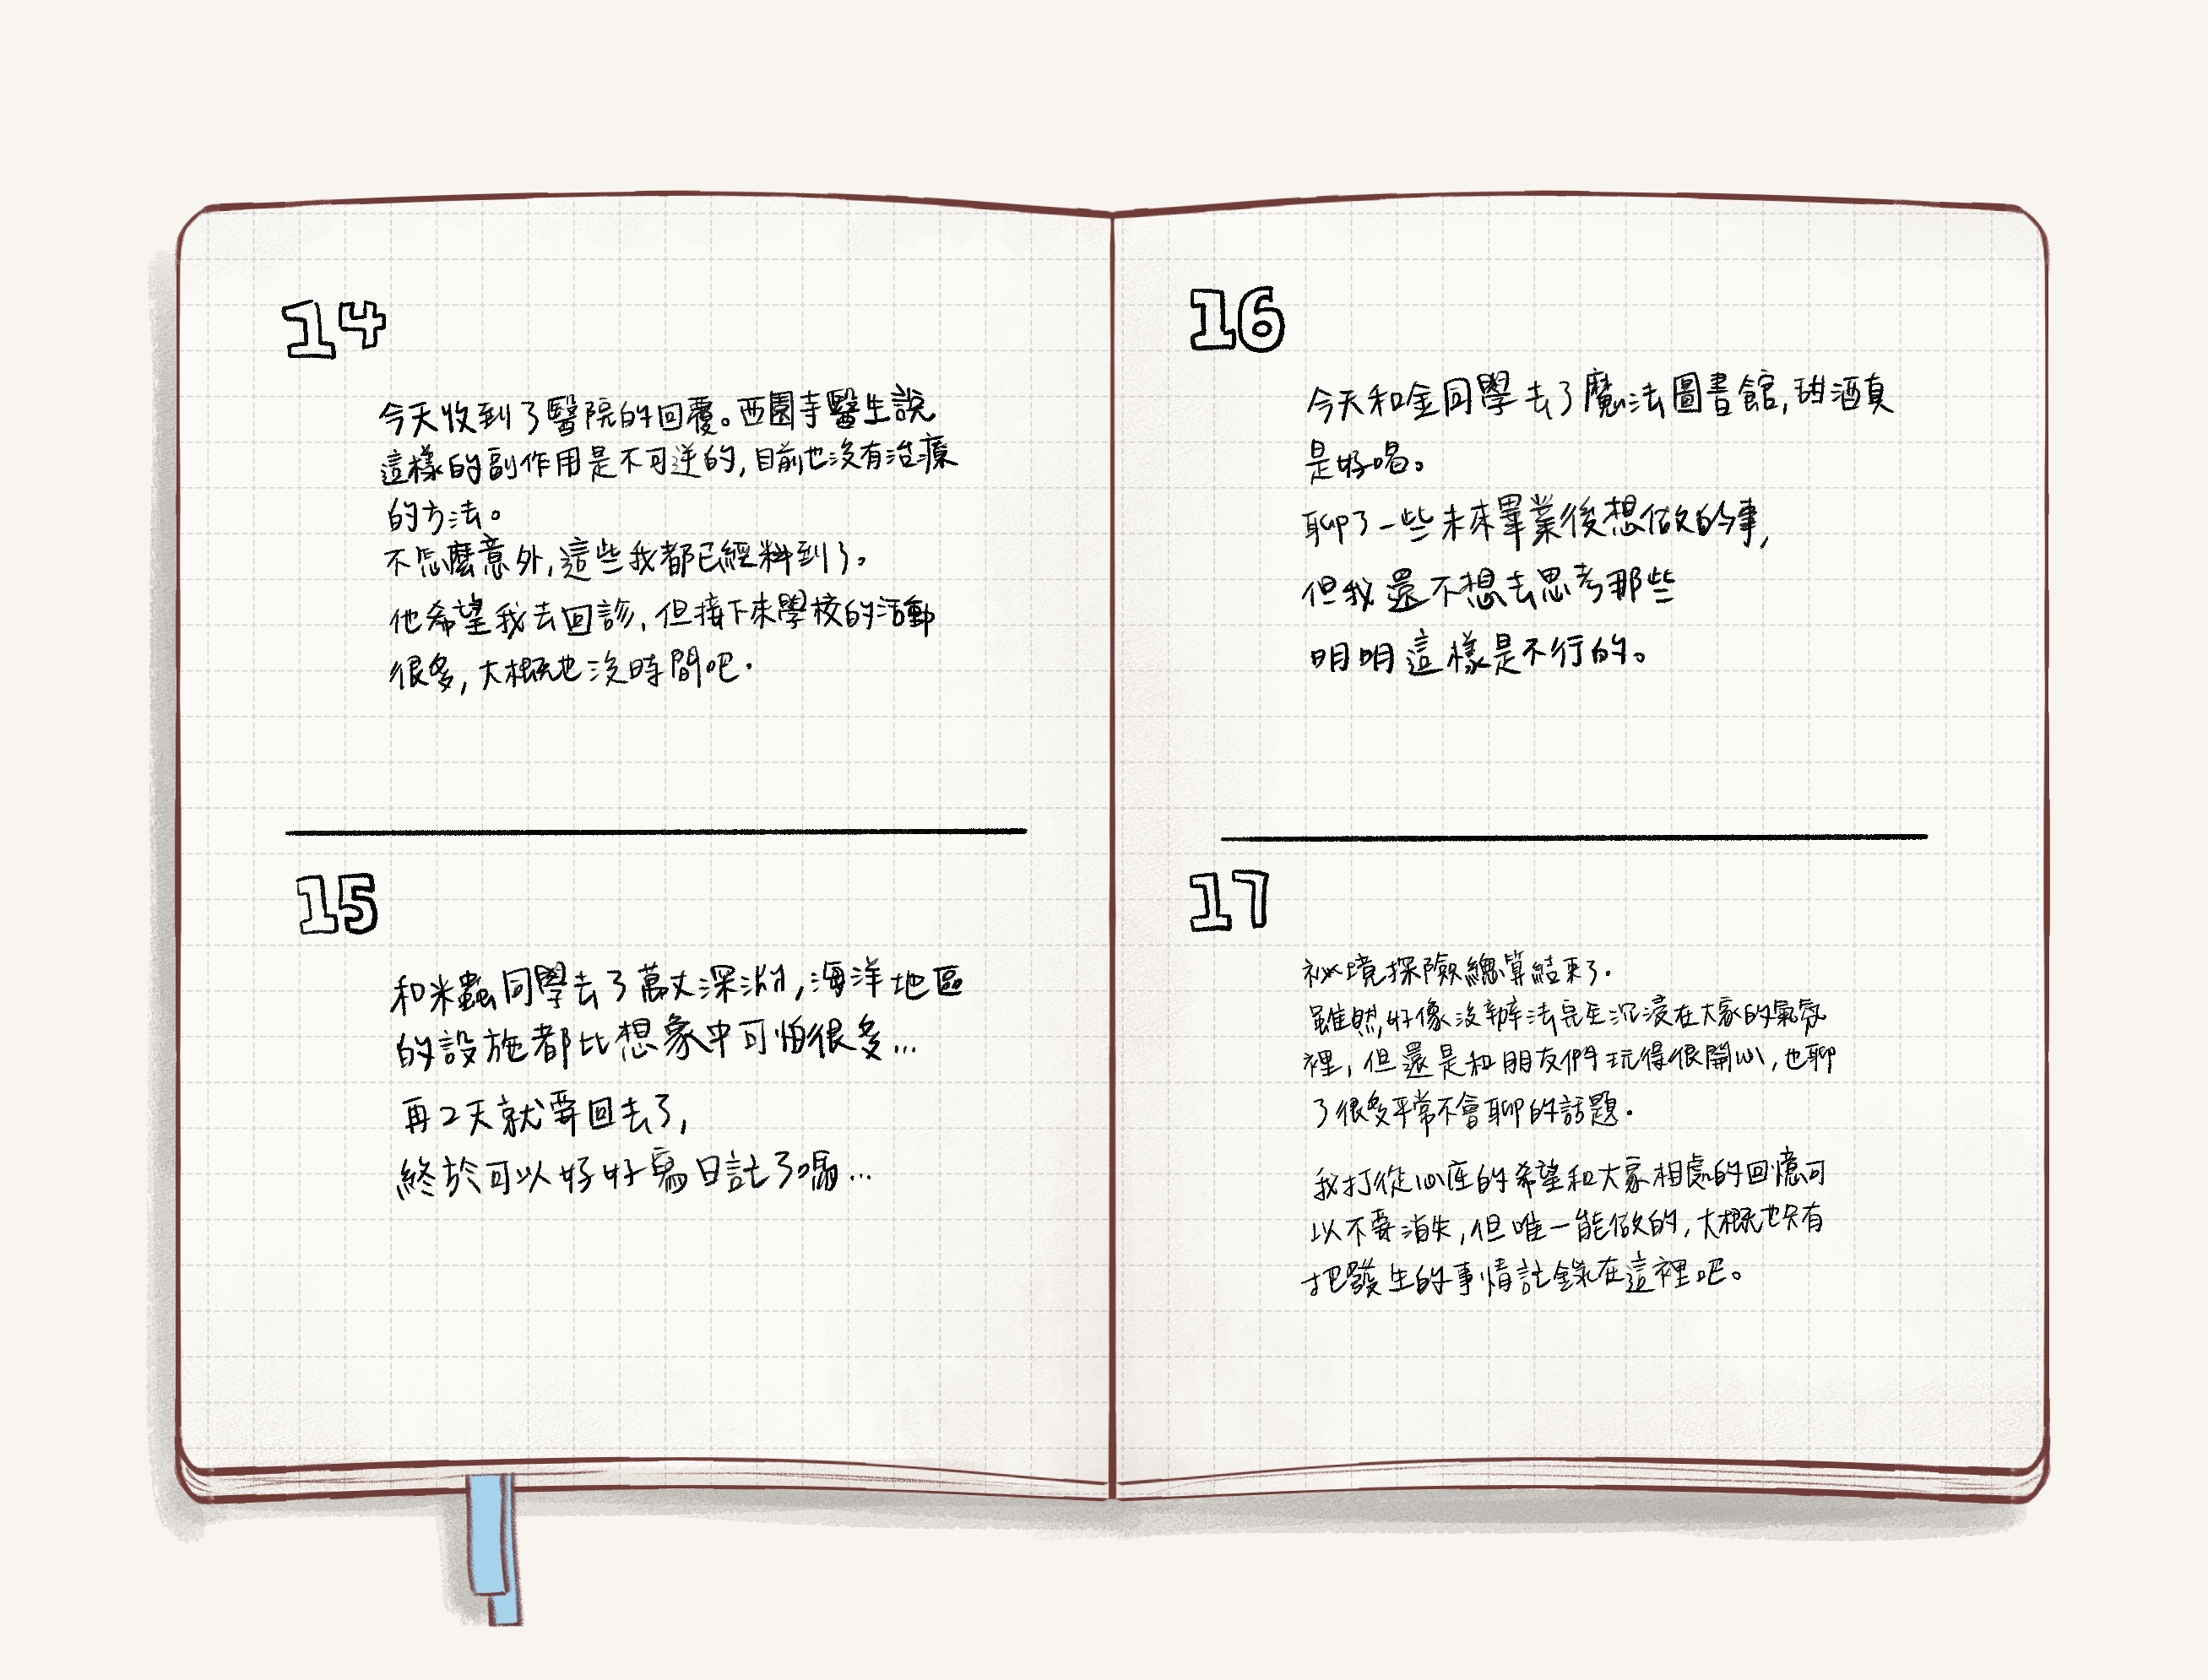 14
今天收到了醫院的回覆。西園寺醫生說
這樣的副作用是不可逆的,目前也沒有治療
的方法。
不怎麼意外,這些我都已經料到了。
他希望我去回診,但接下來學校的活動
很多,大概也沒時間吧.
15
和米蟲同學去了萬丈深淵,海洋地區
的設施都比想象中可怕很多...
再2天就要回去了,
終於可以好好寫日記了嗎...
16
今天和金同學去了魔法圖書館,甜酒真
是好喝。
聊了一些未來畢業後想做的事,
但我還不想去思考那些
明明這樣是不行的。
17
祕境探險總算結束了.
雖然,好像沒辦法完全沉浸在大家的氣氛
裡,但還是和朋友們玩得很開心,也聊
了很多平常不會聊的話題.
我打從心底的希望和大家相處的回憶可
以不要消失,但唯一能做的,大概也只有
把發生的事情記錄在這裡吧。